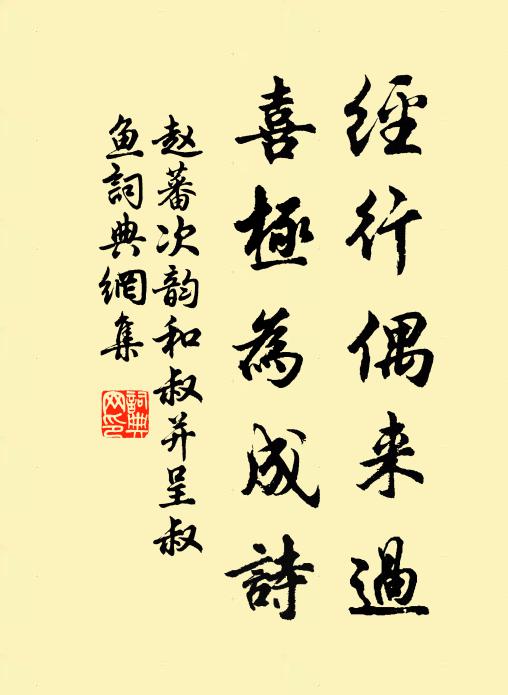 經行偶来過
喜極為成詩
赵蕃次韵和叔并呈叔
鱼詞典網集
詞典網印